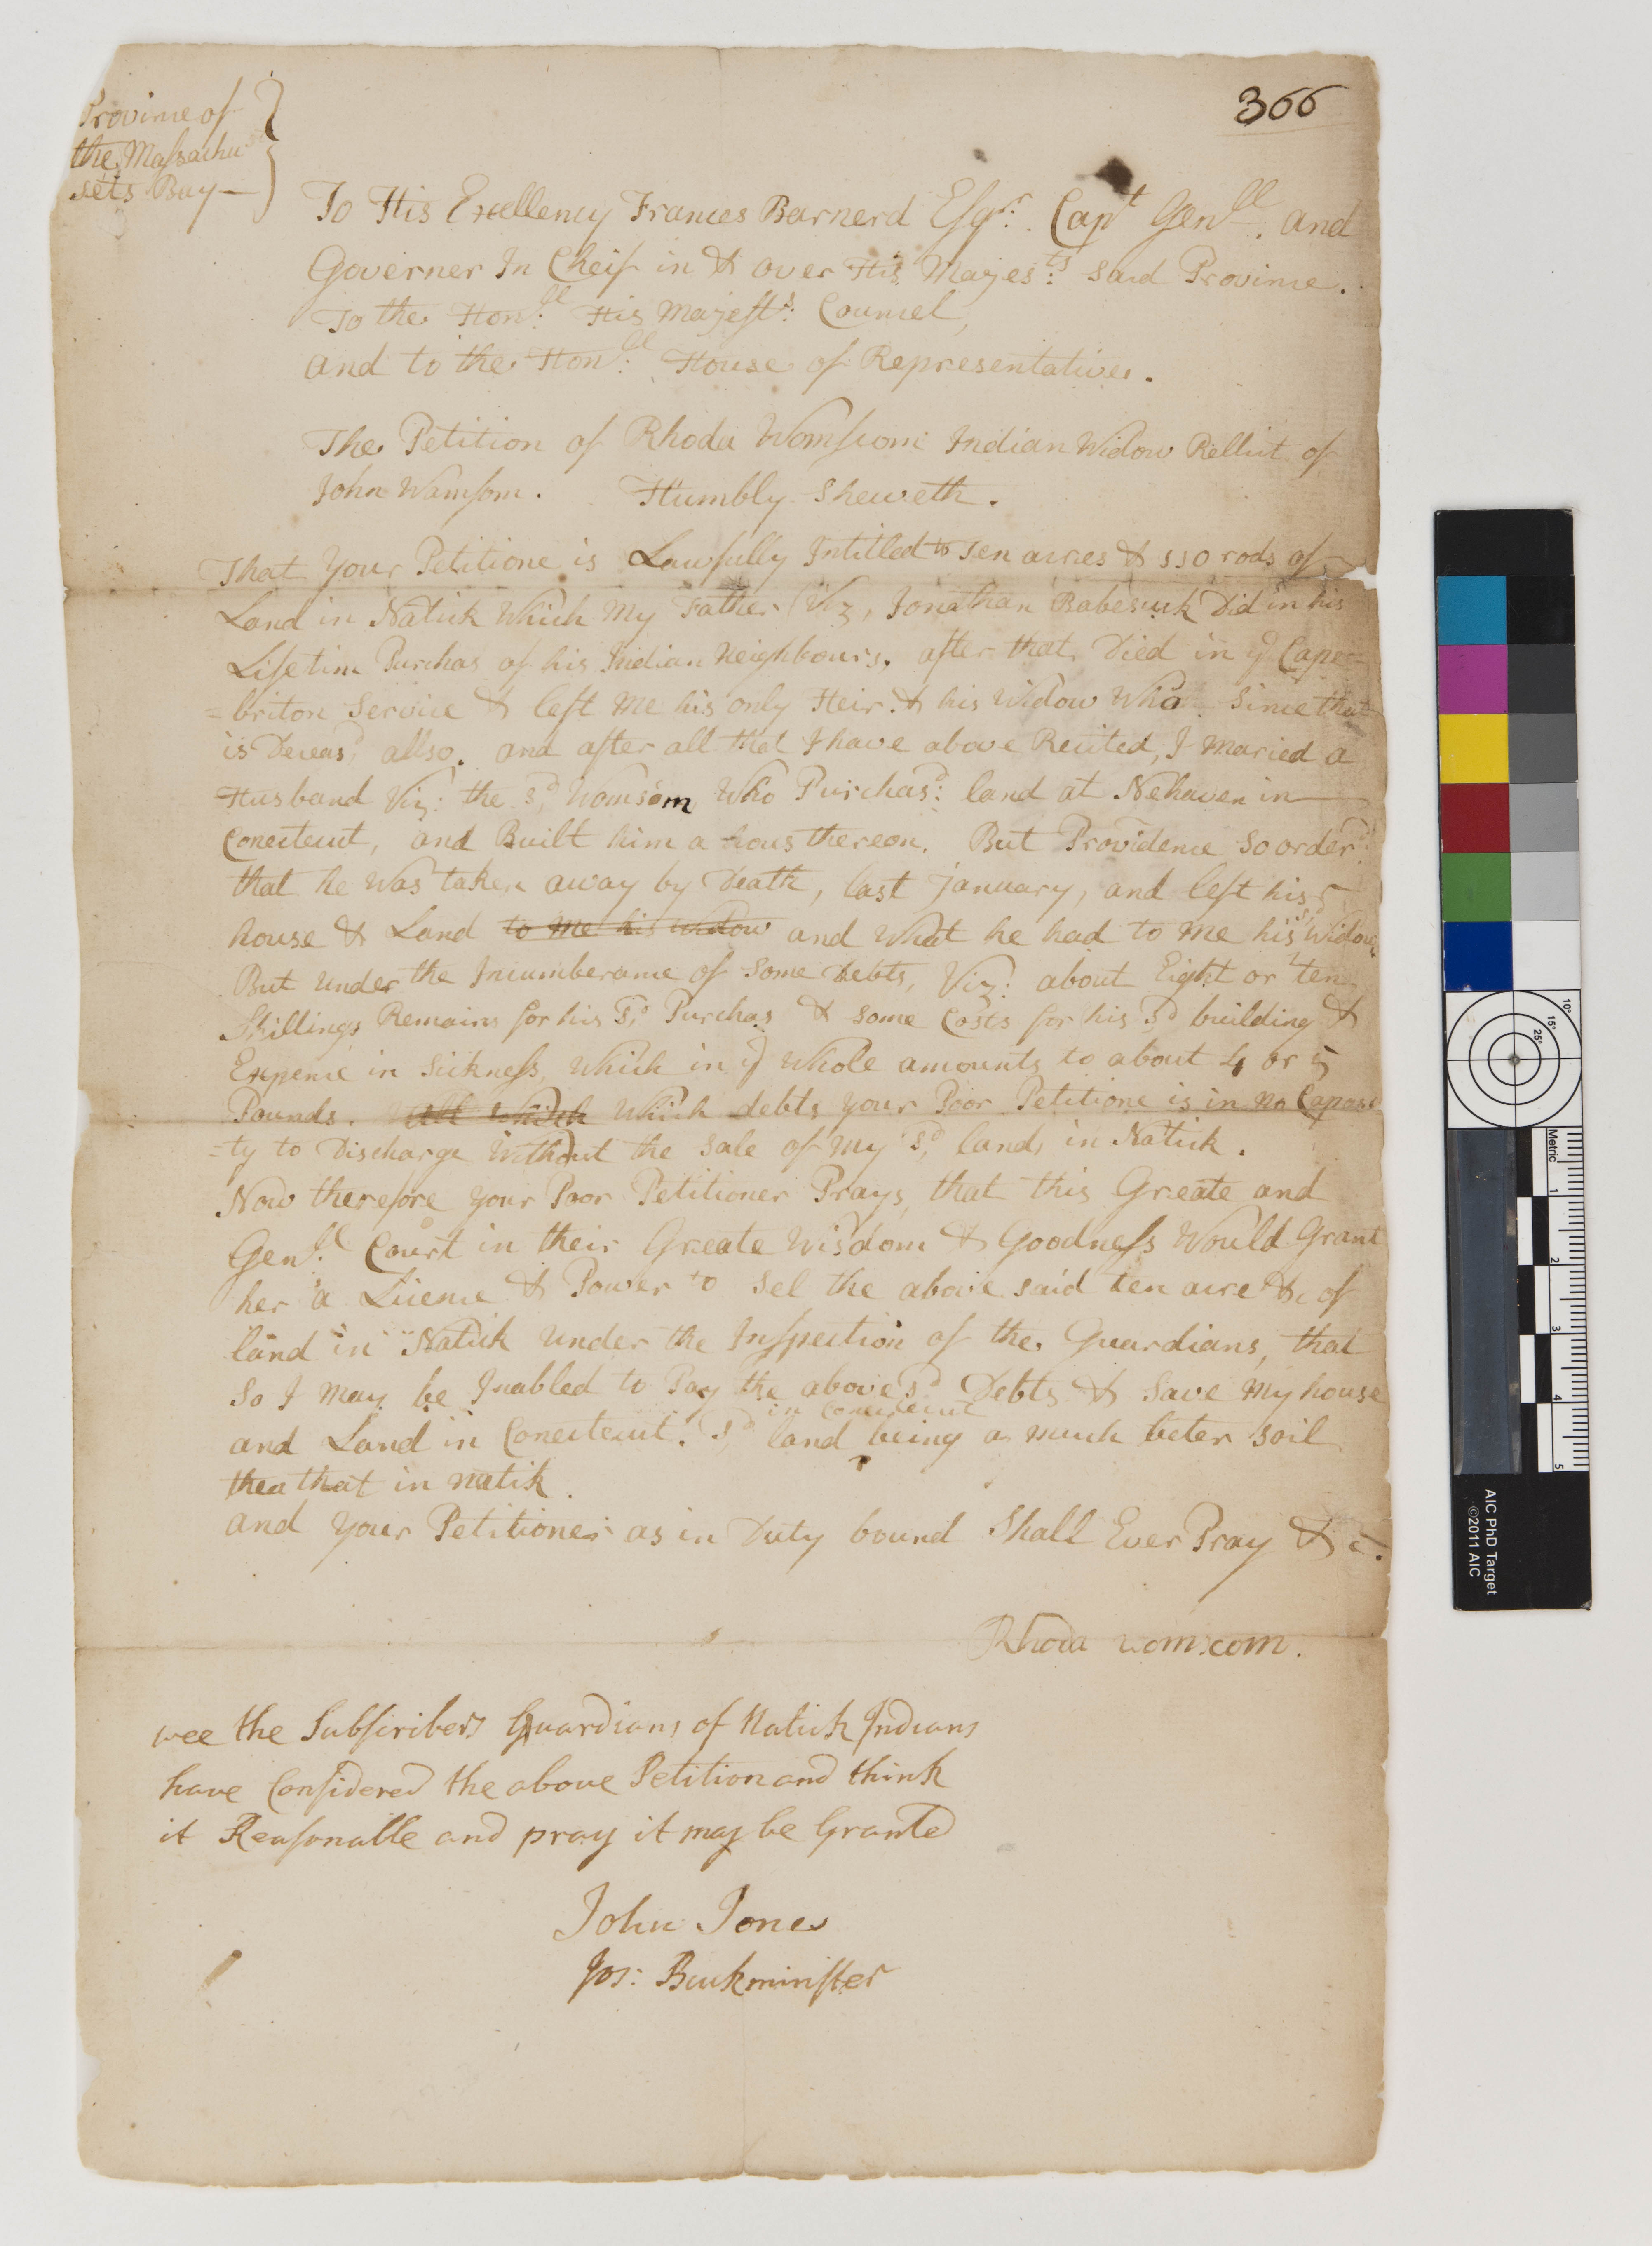 366
Province of
the Massachu
sets Bay —
To His Excellency Frances Barnerd Esqr. Capt Genll. and
Governer In Cheif in & over His Majes:ts said Province.
To the Hon:ll His Majests: Councel,
and to the Hon:ll House of Representatives.
The Petition of Rhoda Womscom Indian Widow Rellict of
John Wamsom. Humbly Sheweth.
That Your Petitione is Lawfully Intitled to Ten acres & 110 rods of
Land in Natick Which My Father (Viz, Jonathan Babesuck Did in his
Lifetim Purchas of his Indian Neighbours, after that Died in ye Cape
=briton Service & left Me his only Heir & his Widow Who Since that
is Deceasd, allso. and after all that I have above Recited, I Maried a
Husband Viz: the sd, Womsom Who Purchasd: land at Nehaven in
Conectecut, and Built him a hous thereon. But Providence so orderd:
that he Was taken away by Death, last january, and left his sd
house & Land to me his widow and What he had to Me his Widow
But under the Incumberance of Some Debts, Viz: about Eight or ten
Shillings Remains for his sd, Purchas & some Costs for his sd building &
Expence in Sickness, Which in ye Whole amounts to about 4 or 5
Pounds. all which Which debts your Poor Petitione is in no Capasi
=ty to Discharge Without the Sale of My sd, land in Natick.
Now therefore your Poor Petitioner Prays, that this Greate and
Genll. Court in their Greate Wisdom & Goodness Would Grant
her a Licence & Power to Sel the above said ten acre &c of
land in Natick under the Inspection of the Guardians, that
So I may be Inabled to Pay the above sd Debts & Save My house
in Conectecut
and Land in Conectecut. sd, land being a much beter soil
then that in natik.
and your Petitioner as in Duty bound Shall Ever Pray & c.
Rhoda womscom.
wee the Subscribers Guardians of Natick Indians
have Considered the above Petition and think
it Reasonable and pray it may be Granted
John Jones
Jos: Buckminster
AIC PhD Target
©2011 AIC
Metric
1
2
3
4
5
10°
15°
25°